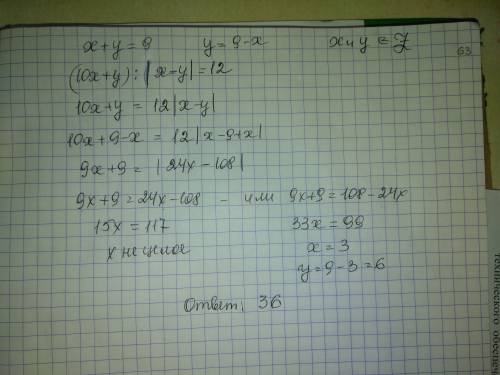 x+y=9 y=9-x x и y ∈ Z
63
(10x+y):|x-y|=12
10x+y = 12|x-y|
10x+9-x = 12|x-9+x|
9x+9 = |24x-108|
9x+9=24x-108 - или 9x+9=108-24x
15x=117 33x=99
x не целое x=3
y=9-3=6
Ответ: 36